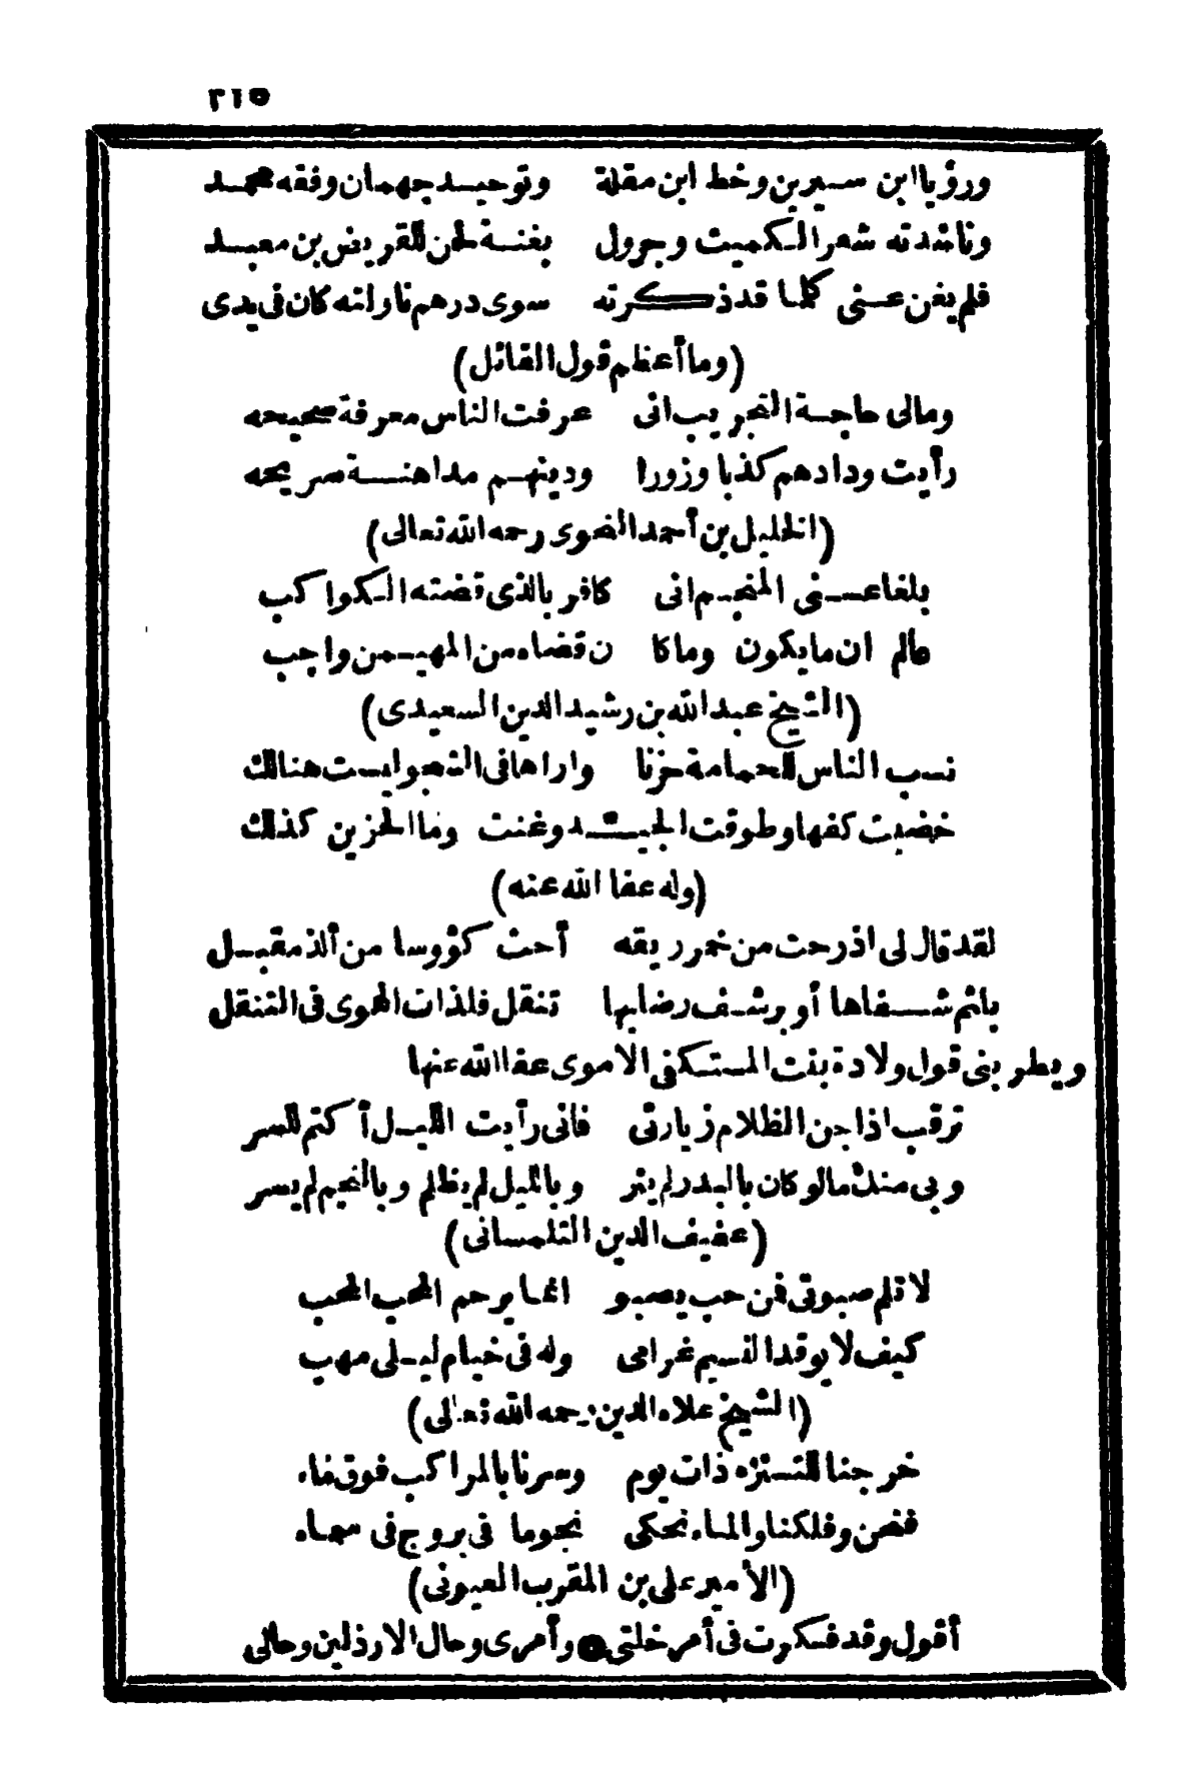 ٢١٥
ورؤيا ابن سيرين وخط ابن مقلة وتوحيد جهمان وفقه محمد
وناشدته شعر الكميت وجرول بغنة لحن للقريض بن معبد
فلم يغن عني كلما قد ذكرته سوى درهم ناولته كان في يدى
(وما أعظم قول القائل)
ومالى حاجة التجريب انى عرفت الناس معرفة صحيحه
رأيت ودادهم كذبا وزورا ودينهم مداهنة صريحه
(الخليل بن أحمد النحوى رحمه الله تعالى)
بلغا عنى المنجم انى كافر بالذى قضته الكواكب
عالم ان ما يكون وما كا ن قضاء من المهيمن واجب
(الشيخ عبد الله بن رشيد الدين السعيدى)
نسب الناس للحمامة حزنا واراها فى الشجو ليست هنالك
خضبت كفها وطوقت الجيد وغنت وما الحزين كذلك
(وله عفا الله عنه)
لقد قال لى اذ رحت من خمر ريقه أحث كؤوسا من ألذ مقبل
بلثم شفاها أو برشف رضابها تنقل فلذات الهوى فى التنقل
ويطربنى قول ولادة بنت المستكفى الاموى عفا الله عنها
ترقب اذا جن الظلام زيارتى فانى رأيت الليل أكتم للسر
وبى منك ما لو كان بالبدر لم ينر وبالليل لم يظلم وبالنجم لم يسر
(عفيف الدين التلمسانى)
لا تلم صبوتى فمن حب يصبو انما يرحم المحب المحب
كيف لا يوقد النسيم غرامى وله فى خيام ليلى مهب
(الشيخ علاء الدين رحمه الله تعالى)
خرجنا للتنزه ذات يوم وسرنا بالمراكب فوق ماء
فنحن وفلكنا والماء نحكى نجوما فى بروج فى سماء
(الأمير على بن المقرب العيونى)
أقول وقد فكرت فى أمر خلتى وأمرى وحال الارذلين وحالى